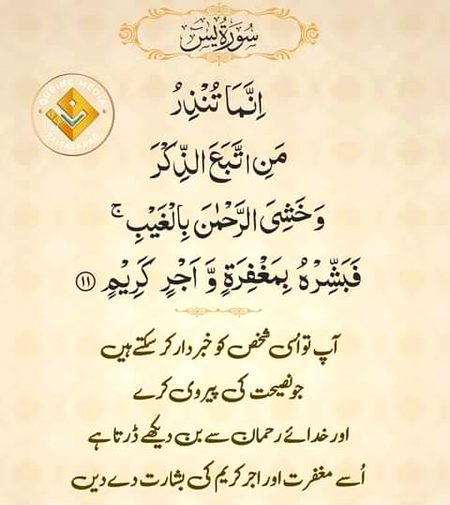 سُوْرَةُ يٰسٓ
QUDING MEDIA
FAISALABAD
اِنَّمَا تُنْذِرُ
مَنِ اتَّبَعَ الذِّكْرَ
وَخَشِیَ الرَّحْمٰنَ بِالْغَیْبِ ۚ
فَبَشِّرْهُ بِمَغْفِرَةٍ وَّ اَجْرٍ كَرِیْمٍ ۝۱۱
آپ تو اُسی شخص کو خبردار کر سکتے ہیں
جو نصیحت کی پیروی کرے
اور خدائے رحمان سے بن دیکھے ڈرتا ہے
اُسے مغفرت اور اجر کریم کی بشارت دے دیں